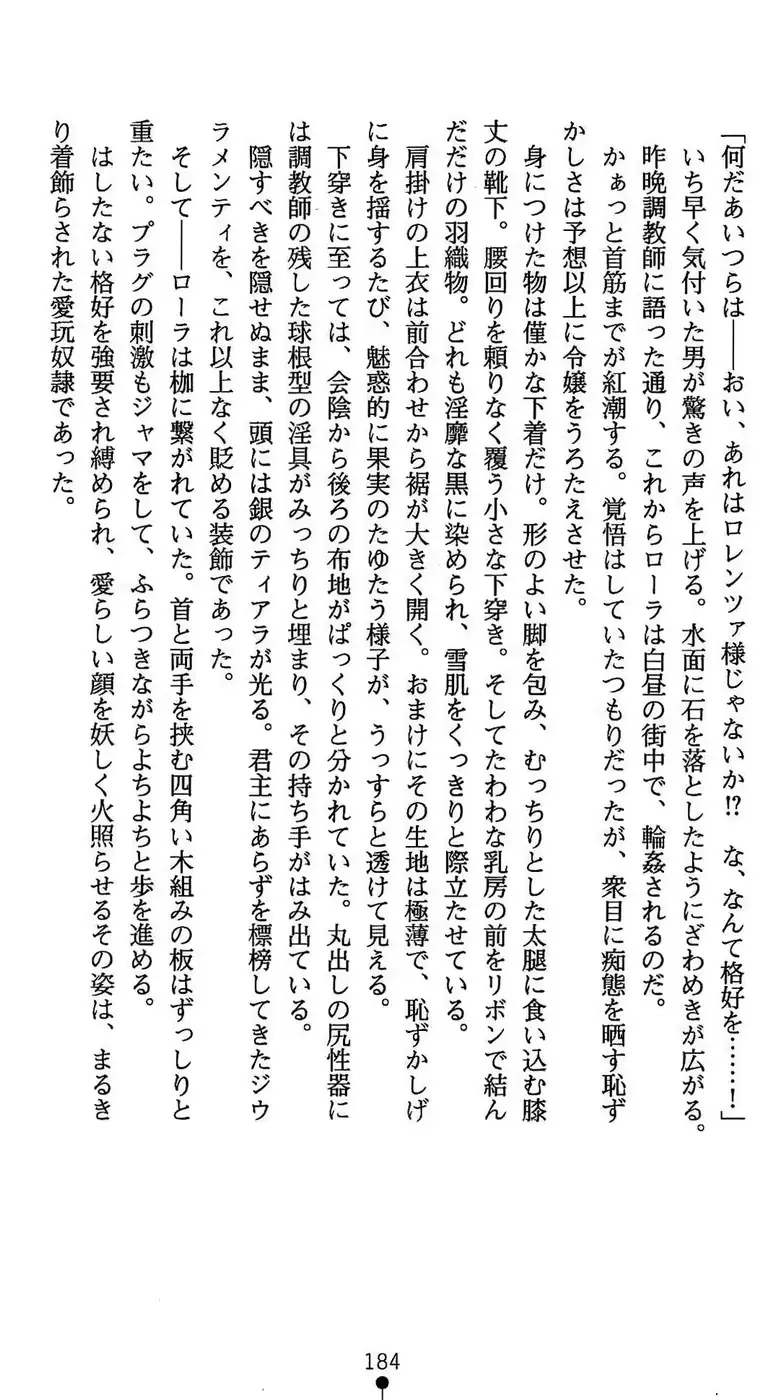 「何だあいつらは――おい、あれはロレンツァ様じゃないか!?　な、なんて格好を……！」
いち早く気付いた男が驚きの声を上げる。水面に石を落としたようにざわめきが広がる。
昨晩調教師に語った通り、これからローラは白昼の街中で、輪姦されるのだ。
かぁっと首筋までが紅潮する。覚悟はしていたつもりだったが、衆目に痴態を晒す恥ず
かしさは予想以上に令嬢をうろたえさせた。
身につけた物は僅かな下着だけ。形のよい脚を包み、むっちりとした太腿に食い込む膝
丈の靴下。腰回りを頼りなく覆う小さな下穿き。そしてたわわな乳房の前をリボンで結ん
だだけの羽織物。どれも淫靡な黒に染められ、雪肌をくっきりと際立たせている。
肩掛けの上衣は前合わせから裾が大きく開く。おまけにその生地は極薄で、恥ずかしげ
に身を揺するたび、魅惑的に果実のたゆたう様子が、うっすらと透けて見える。
下穿きに至っては、会陰から後ろの布地がぱっくりと分かれていた。丸出しの尻性器に
は調教師の残した球根型の淫具がみっちりと埋まり、その持ち手がはみ出ている。
隠すべきを隠せぬまま、頭には銀のティアラが光る。君主にあらずを標榜してきたジウ
ラメンティを、これ以上なく貶める装飾であった。
そして――ローラは枷に繋がれていた。首と両手を挟む四角い木組みの板はずっしりと
重たい。プラグの刺激もジャマをして、ふらつきながらよちよちと歩を進める。
はしたない格好を強要され縛められ、愛らしい顔を妖しく火照らせるその姿は、まるき
り着飾らされた愛玩奴隷であった。
184